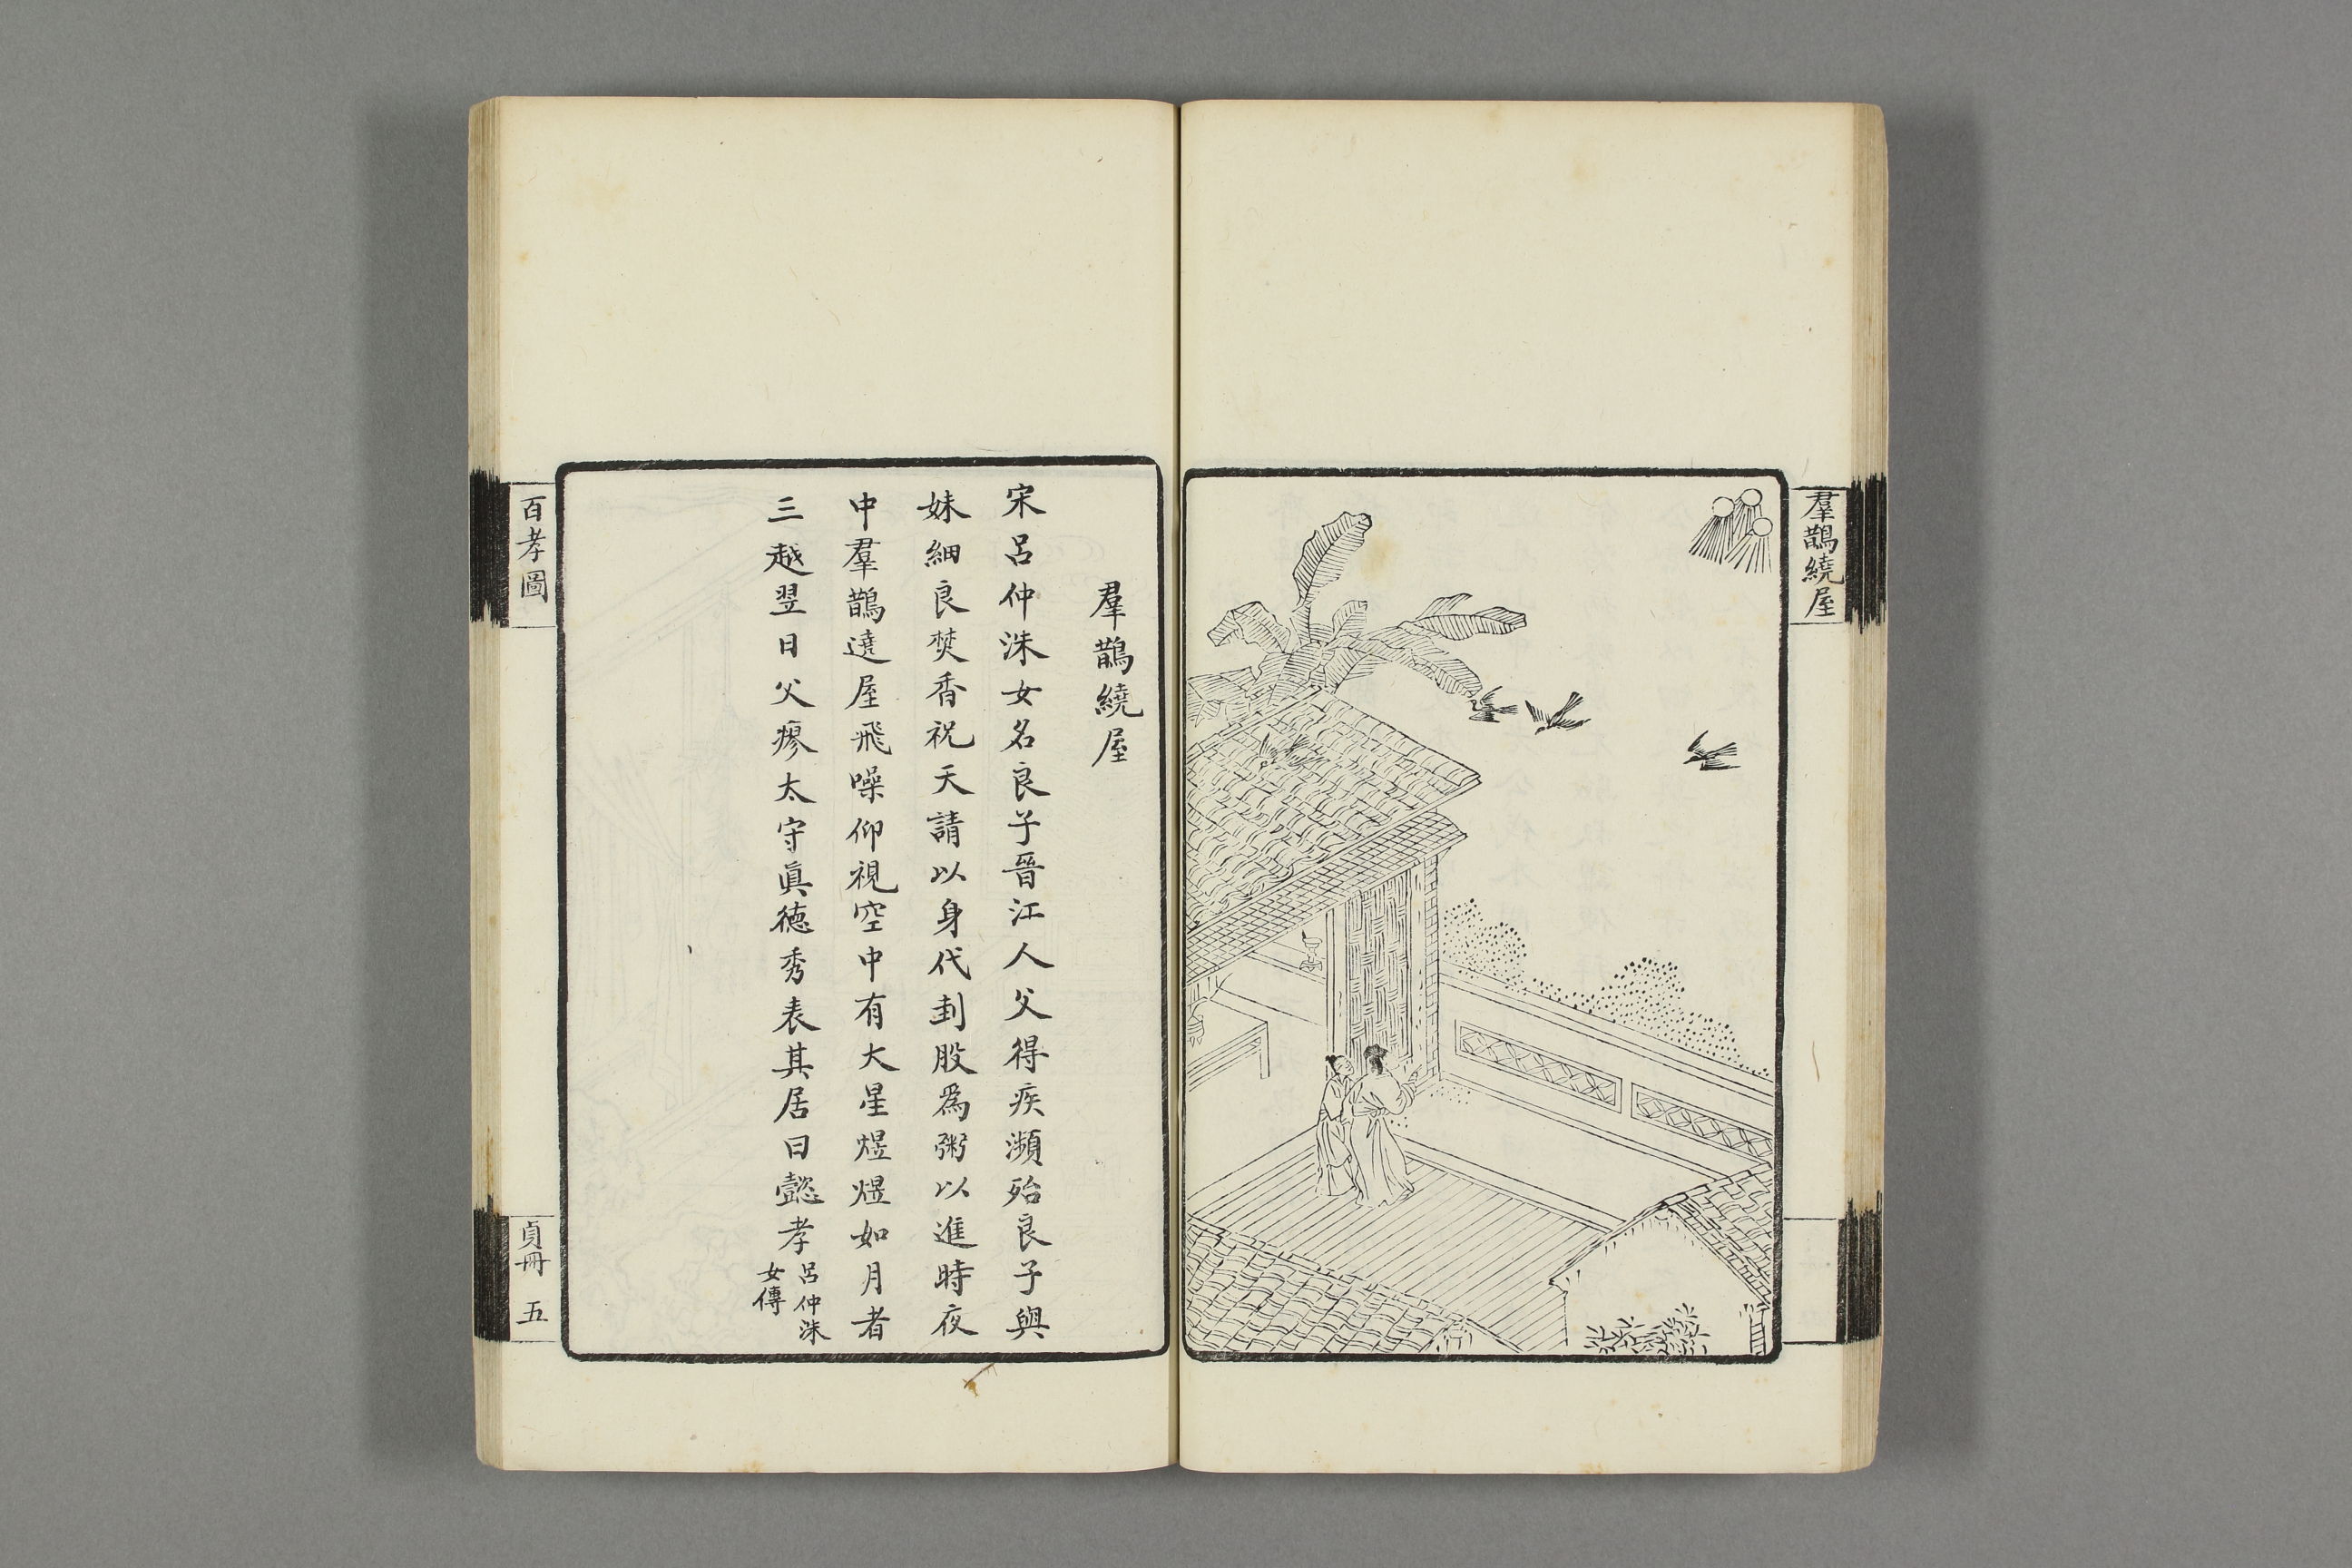 羣鵲繞屋
羣鵲繞屋
宋呂仲洙女名良子晉江人父得疾瀕殆良子與
妹細良焚香祝天請以身代刲股爲粥以進時夜
中羣鵲遶屋飛噪仰視空中有大星煜煜如月者
三越翌日父瘳太守眞德秀表其居曰懿孝
呂仲洙
女傳
百孝圖
貞冊
五